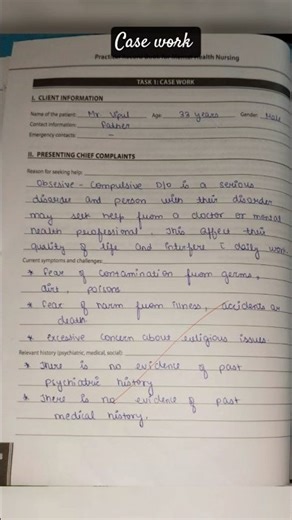 Case work
Mental Health Nursing
TASK 1: CASE WORK
I. CLIENT INFORMATION
Name of the patient: Mr. Vipul Age: 22 years Gender: Male
Contact information: Father
Emergency contacts: —
II. PRESENTING CHIEF COMPLAINTS
Reason for seeking help:
Obsesive - Compulsive D/O is a serious
disorder and person with their disorder
may seek help from a doctor or mental
health professional. This affect their
quality of life and interfere daily work
Current symptoms and challenges:
* fear of contamination from germs,
dirt, poisons
* fear of harm from illness, accidents or
death
* excessive concern about religious issues
Relevant history (psychiatric, medical, social):
* There is no evidence of past
psychiatric history
* There is no evidence of past
medical history.